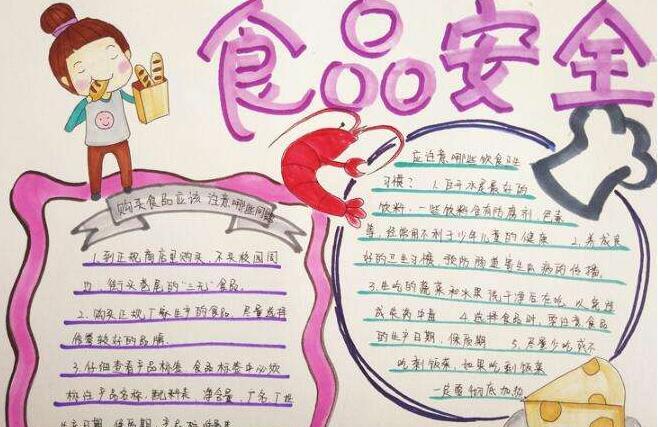 食品安全
购买食品应该注意哪些问题
1.到正规商店里购买,不买校园周
边、街头巷尾的"三无"食品。
2.购买正规厂家生产的食品,尽量选择
信誉较好的品牌。
3.仔细查看产品标签 食品标签中必须
标注产品名称、配料表、净含量、厂名、厂址
生产日期、保质期、产品标准
应注意哪些饮食卫生
习惯? 1.白开水是最好的
饮料,一些饮料含有防腐剂、色素
等,经常饮用不利于少年儿童的健康 2.养成良
好的卫生习惯 预防肠道寄生虫病的传播
3.生吃的蔬菜和水果洗干净后在吃,以免造
成农药中毒 4.选择食品时,要注意食品
的生产日期、保质期 5.尽量少吃或不
吃剩饭菜,如果吃剩饭菜
一定要彻底加热